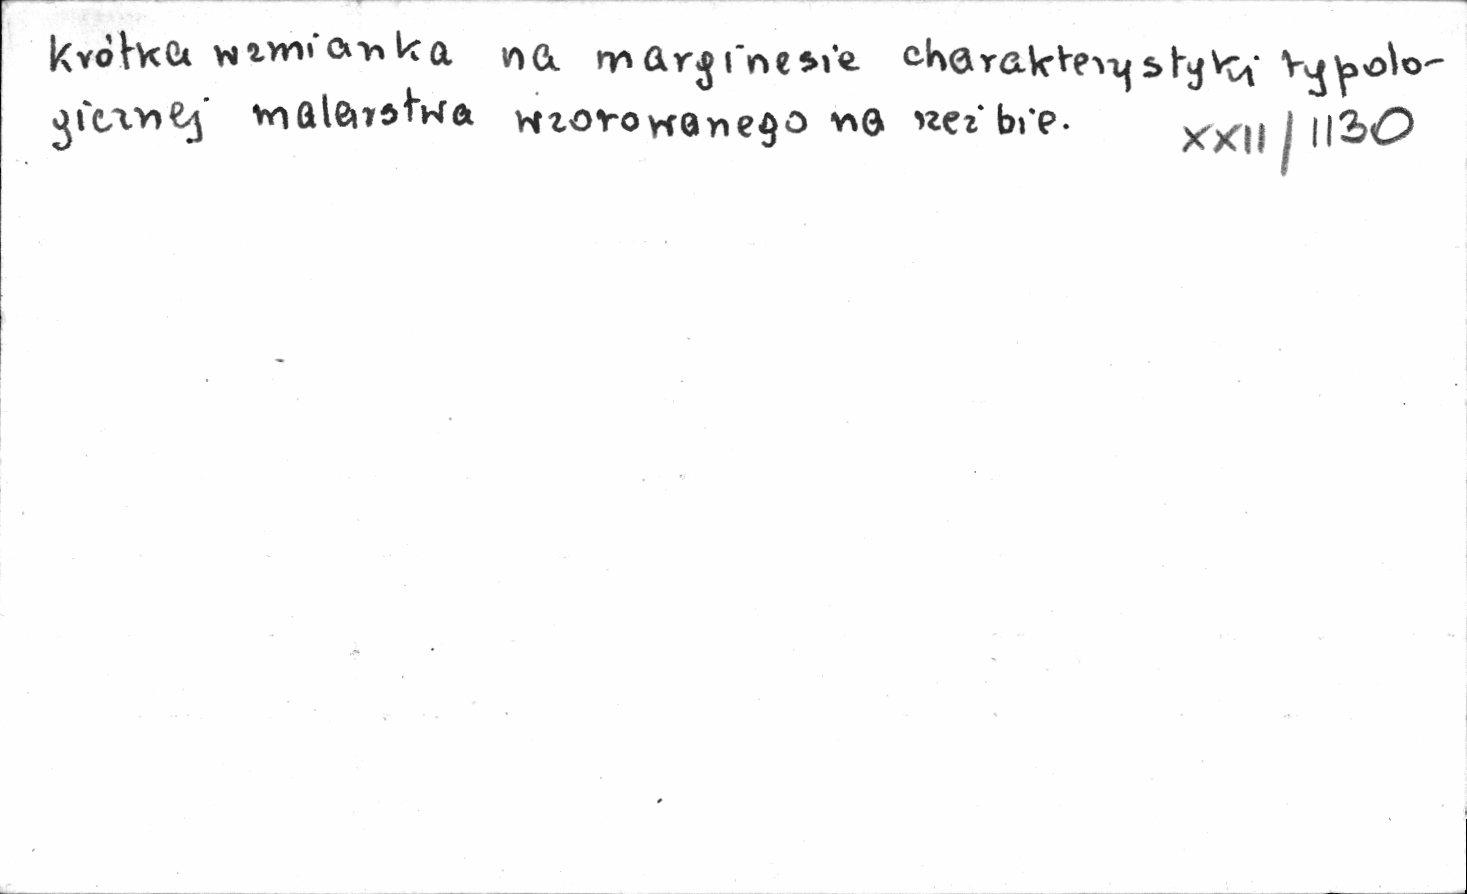 krótka wzmianka na marginesie charakterystyki typolo-
gicznej malarstwa wzorowanego na rzeźbie. XXII/1130